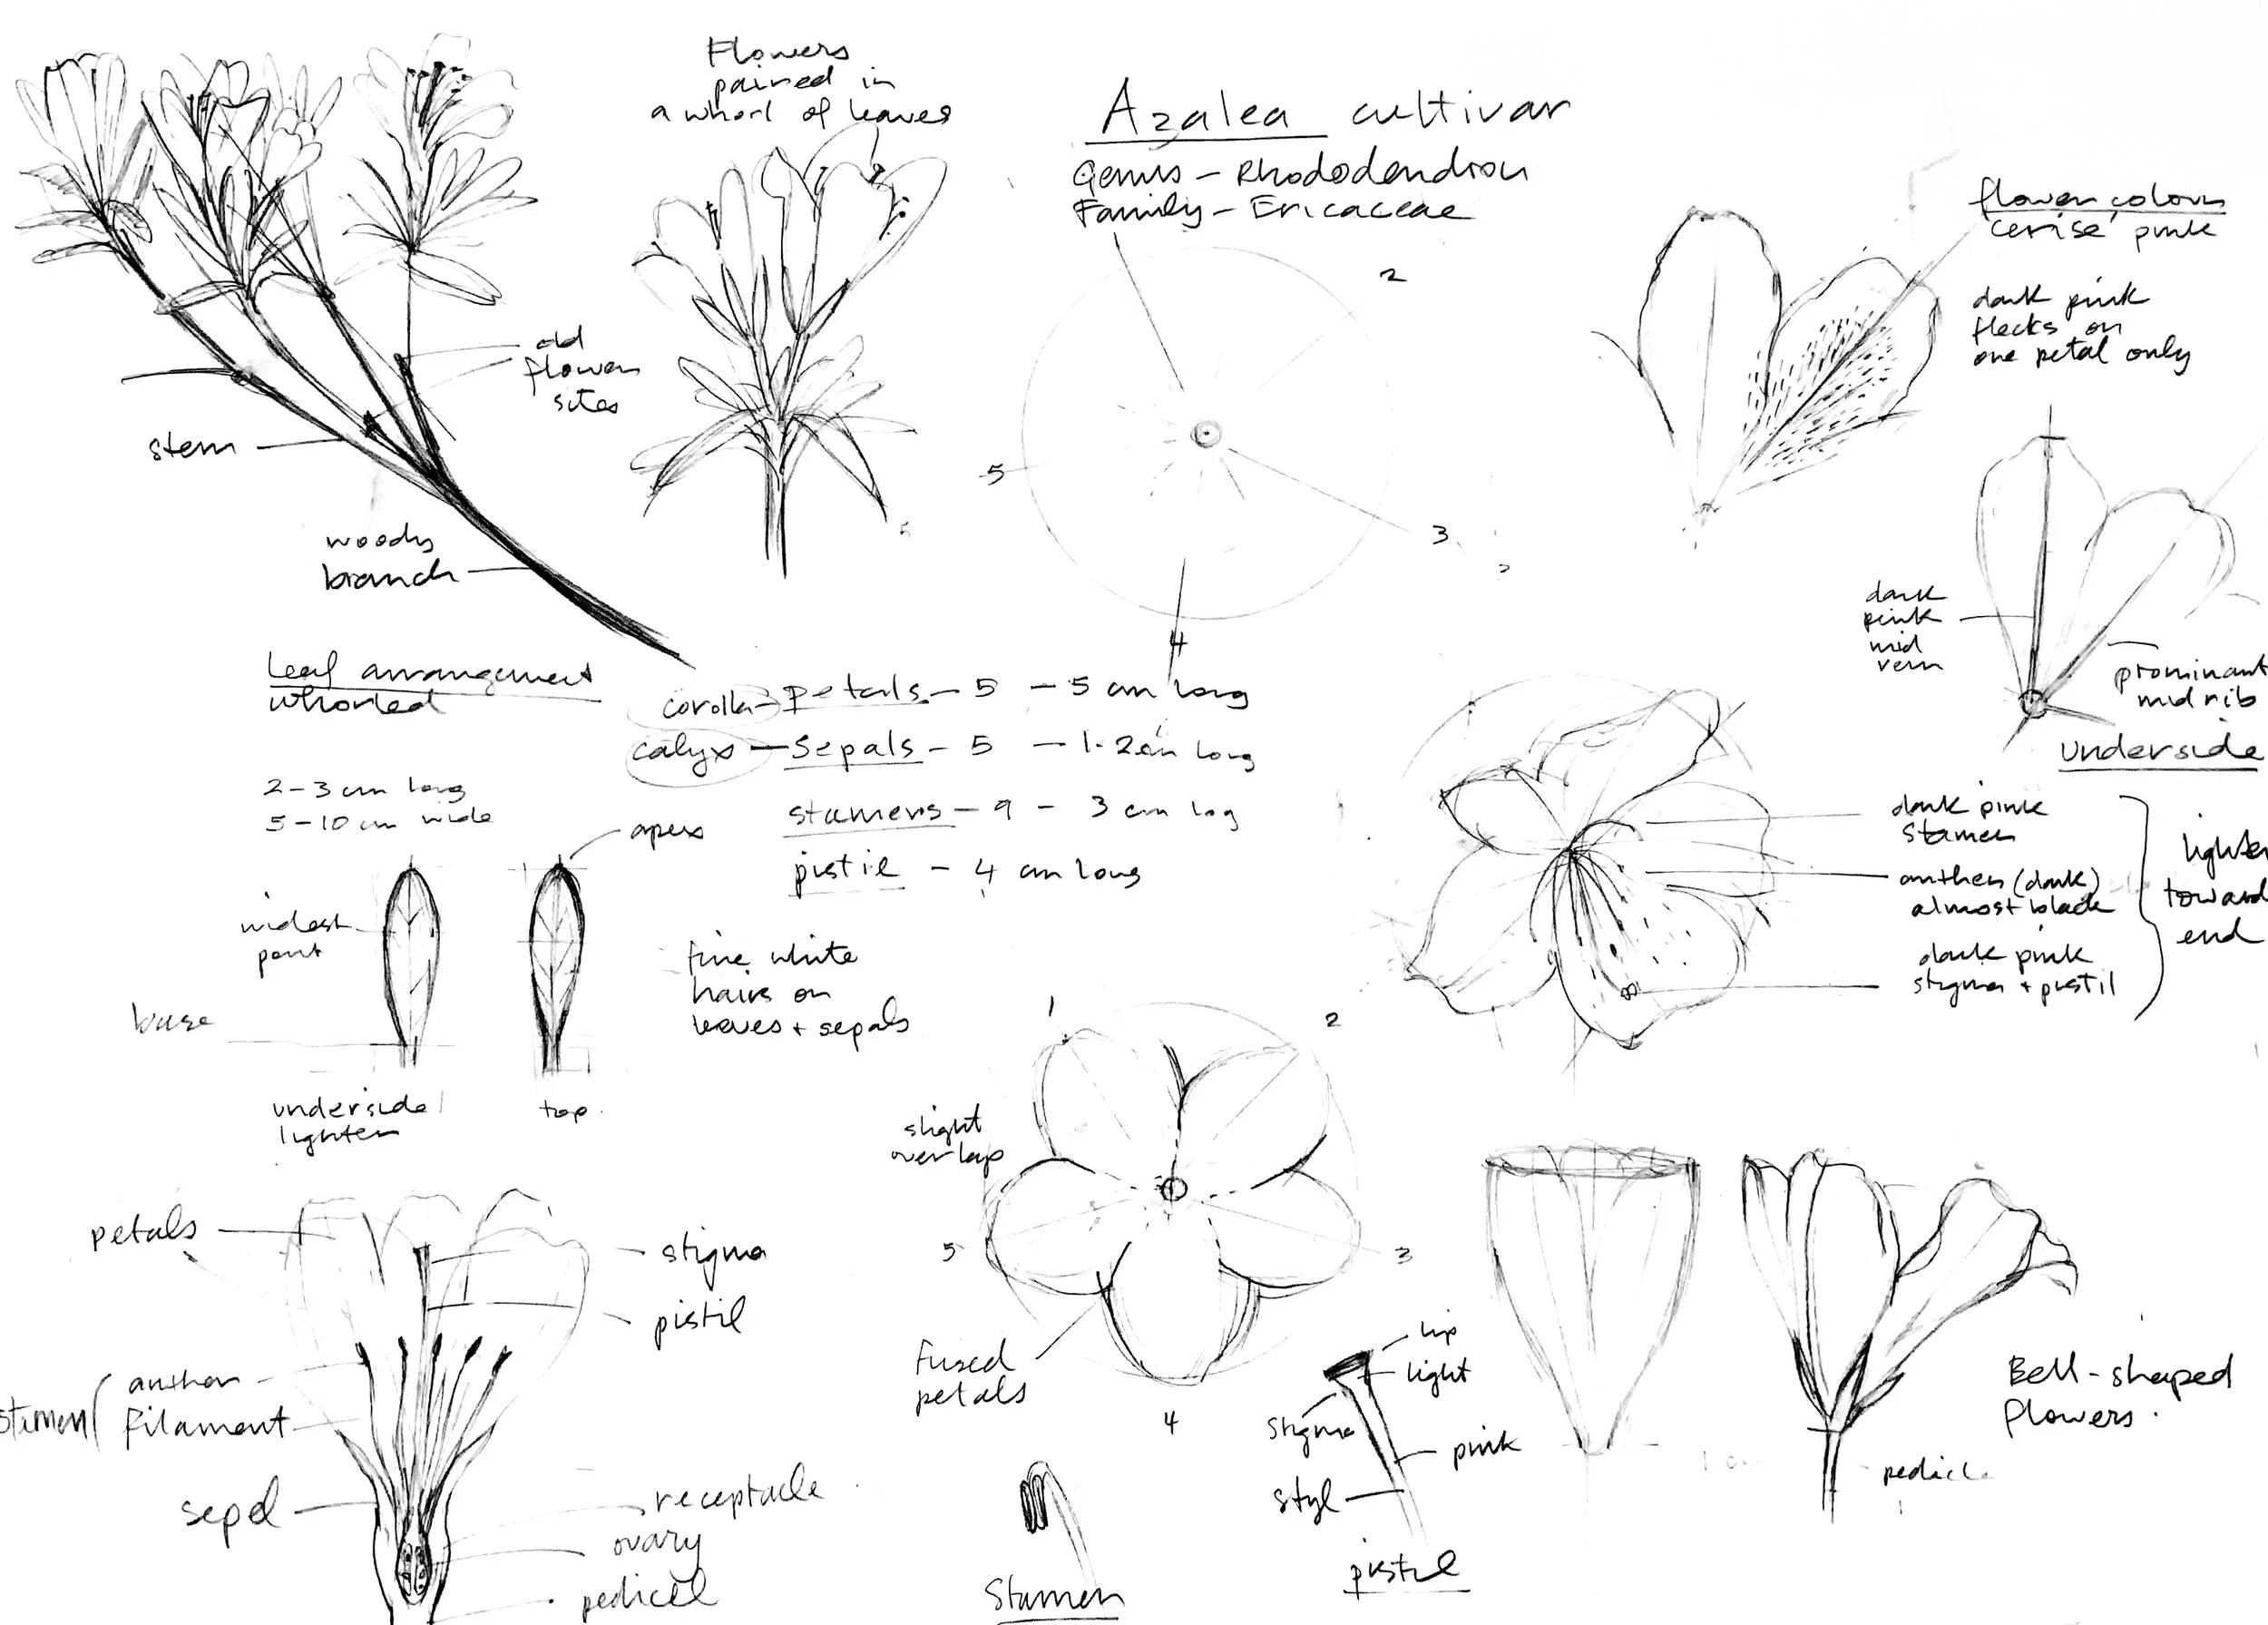 Flowers
paired in
a whorl of leaves
Azalea cultivar
Genus - Rhododendron
Family - Ericaceae
flower colour
cerise pink
dark pink
flecks on
one petal only
old
flower
sites
stem
woody
branch
2
5
3
4
dark
pink
mid
vein
prominant
mid rib
underside
Leaf arrangement
whorled
corolla - petals - 5 - 5 cm long
calyx - sepals - 5 - 1-2cm long
stamens - 9 - 3 cm log
pistil - 4 cm long
2-3 cm long
5-10 cm wide
apex
widest
point
base
underside
lighter
top
fine white
hairs on
leaves + sepals
dark pink
stamen
anther (dark)
almost black
dark pink
stigma + pistil
lighter
toward
end
1
2
3
4
5
slight
overlap
fused
petals
petals
stigma
pistil
anther
filament
stamen
sepal
receptacle
ovary
pedicel
stamen
lip
light
stigma
pink
styl
pistil
Bell-shaped
flowers.
pedicle